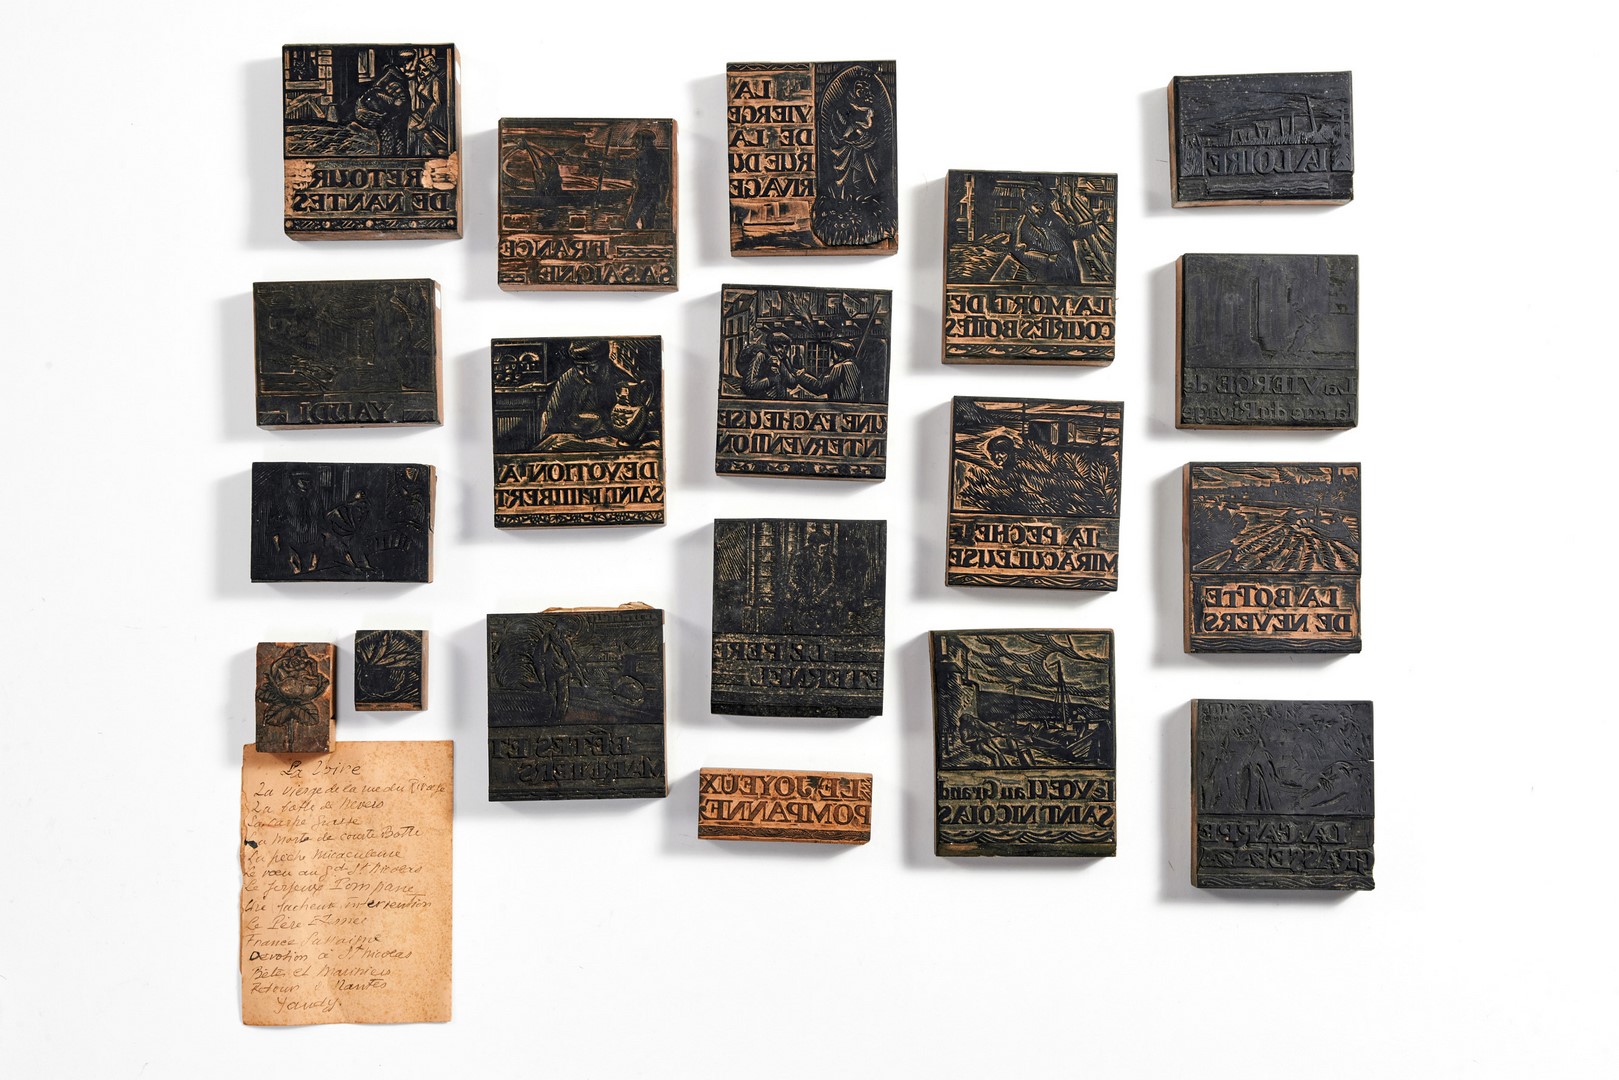 RETOUR
DE NANTES
YAUDI
FRANCE
SA SAIGNE
DEVOTION A
SAINT PHILIBERT
BÊTES ET
MARINIERS
LA
VIERGE
DE LA
RUE DU
RIVAGE
UNE FACHEUSE
INTERVENTION
LE PERE
ETERNEL
LE JOYEUX
POMPANNE
LA MORT DE
COURTES BOTTES
LA PÊCHE
MIRACULEUSE
Le VŒU au Grand
SAINT NICOLAS
LA LOIRE
La VIERGE de
la rue du Rivage
LA BOTTE
DE NEVERS
LA CARPE
GRASSE
La Loire
La vierge de la rue du Rivage
La botte de Nevers
La Carpe Grasse
La Morte de courte Botte
La peche Miraculeuse
Le vœu au gd St Nicolas
Le joyeux Pompane
Une facheuse intervention
Le Père
France
Devotion a St Nicolas
Bêtes et Mariniers
Retour à Nantes
Yaudy